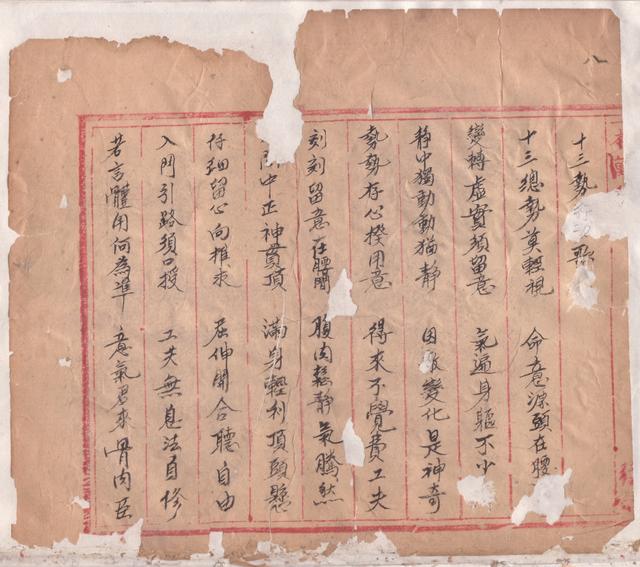 八
十三勢 歌
十三總勢莫輕視 命意源頭在腰
變轉虛實須留意 氣遍身軀不少
靜中獨動動猶靜 因 變化是神奇
勢勢存心揆用意 得來不覺費工夫
刻刻留意在腰間 腹內鬆靜氣騰然
中正神貫頂 滿身輕利頂頭懸
仔細留心向推求 屈伸開合聽自由
入門引路須口授 工夫無息法自修
若言體用何為準 意氣君來骨肉臣